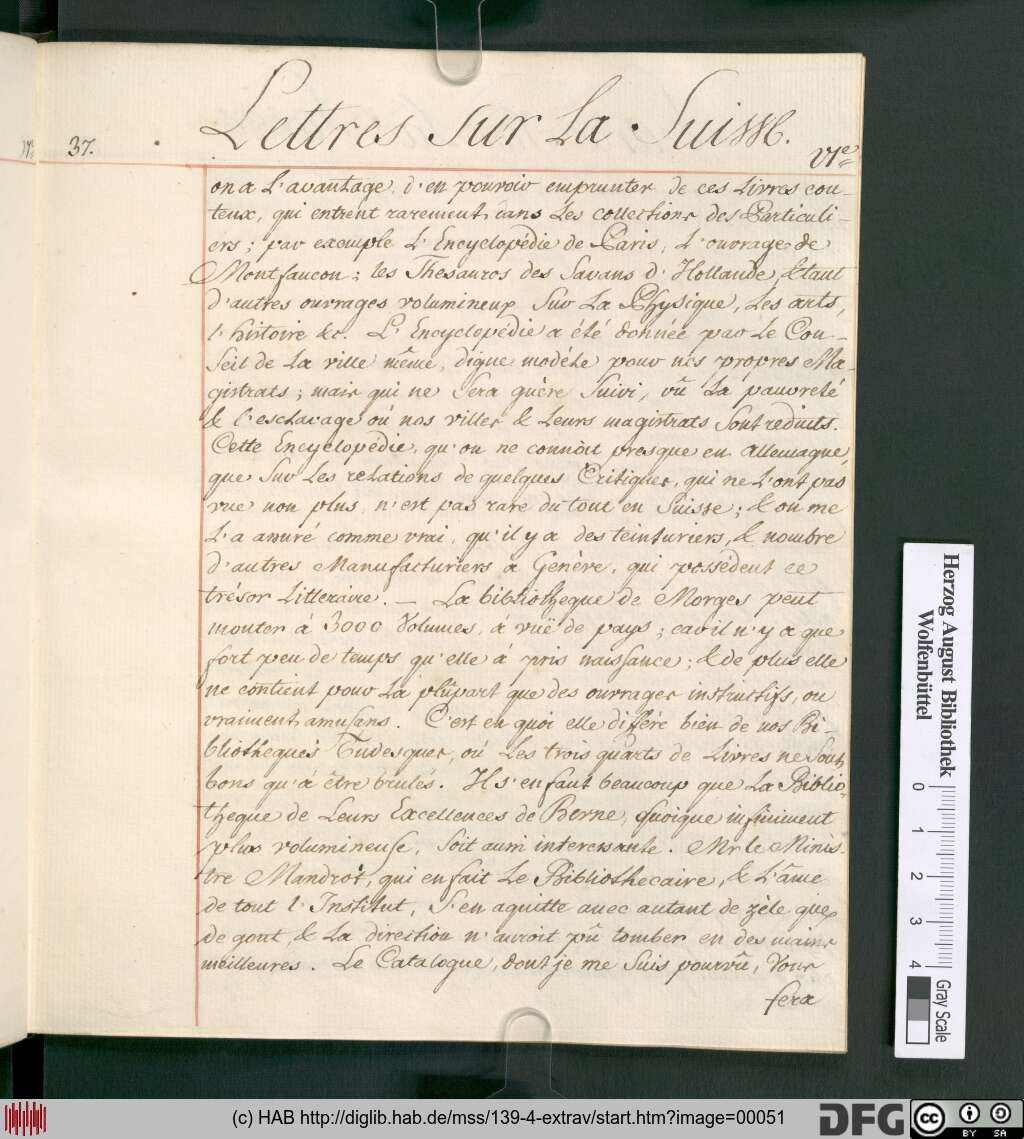 37.
Lettres sur la Suisse.
VIe
on a l'avantage, d'en pouvoir emprunter de ces livres cou-
teux, qui entrent rarement dans les collections des Particuli-
ers; par exemple l'Encyclopédie de Paris, l'ouvrage de
Montfaucon; les Thesauros des Savans d'Hollande, & tant
d'autres ouvrages volumineux sur la Physique, les arts,
l'histoire &c. L'Encyclopédie a été donnée par le Con-
seil de la ville même, digne modéle pour nos propres Ma-
gistrats; mais qui ne sera guère suivi, vû la pauvreté
& l'esclavage où nos villes & leurs magistrats sont reduits.
Cette Encyclopédie, qu'on ne connoit presque en Allemagne,
que sur les relations de quelques Critiques, qui ne l'ont pas
vue non plus, n'est pas rare du tout en Suisse; & on me
l'a assuré comme vrai, qu'il y a des teinturiers, & nombre
d'autres Manufacturiers a Genève, qui possédent ce
trésor litteraire. — La bibliotheque de Morges peut
monter à 3000 Volumes, à vuë de pays; car il n'y a que
fort peu de temps qu'elle à pris naissance; & de plus elle
ne contient pour la plûpart que des ouvrages instructifs, ou
vraiment amusans. C'est en quoi elle différe bien de nos Bi-
bliotheques Tudesques, où les trois quarts de livres ne sont
bons qu'à être brulés. Il s'en faut beaucoup que la Biblio-
theque de Leurs Excellences de Berne, quoique infiniment
plus volumineuse, soit aussi interessante. Mr le Minis-
tre Mandrot, qui en fait le Bibliothecaire, & l'âme
de tout l'Institut, s'en aquitte avec autant de zèle que
de gout, & la direction n'auroit pû tomber en des mains
meilleures. Le Catalogue, dont je me suis pourvû, Vous
fera
Herzog August Bibliothek
Wolfenbüttel
0
1
2
3
4
Gray Scale
(c) HAB http://diglib.hab.de/mss/139-4-extrav/start.htm?image=00051
DFG
cc
BY SA